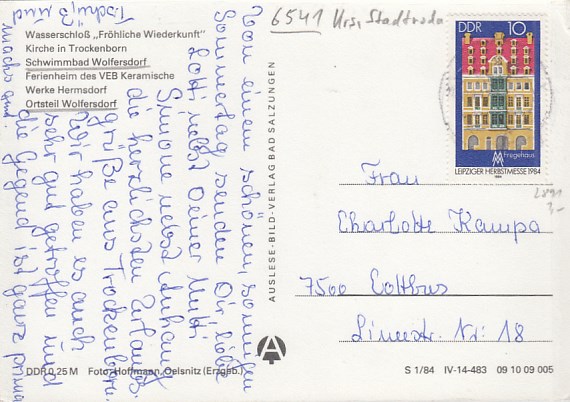 Wasserschloß „Fröhliche Wiederkunft"
Kirche in Trockenborn
Schwimmbad Wolfersdorf
Ferienheim des VEB Keramische
Werke Hermsdorf
Ortsteil Wolfersdorf
6541 Krs. Stadtroda
Von einem schönen, sonnigen
Sommertag senden Dir liebe
Lotti nebst Deiner Mutti
Simone nebst Anhang
die herzlichsten Urlaubs-
grüße aus Trockenborn.
Wir haben es auch
sehr gut getroffen und
die Gegend ist ganz prima
machs gut.
Tschüß und
AUSLESE-BILD-VERLAG BAD SALZUNGEN
DDR 10
Fregehaus
LEIPZIGER HERBSTMESSE 1984
2891
Frau
Charlotte Kampa
7500 Cottbus
Lines­tr. Nr. 18
DDR 0,25 M Foto: Hoffmann, Oelsnitz (Erzgeb.)
S 1/84 IV-14-483 09 10 09 005